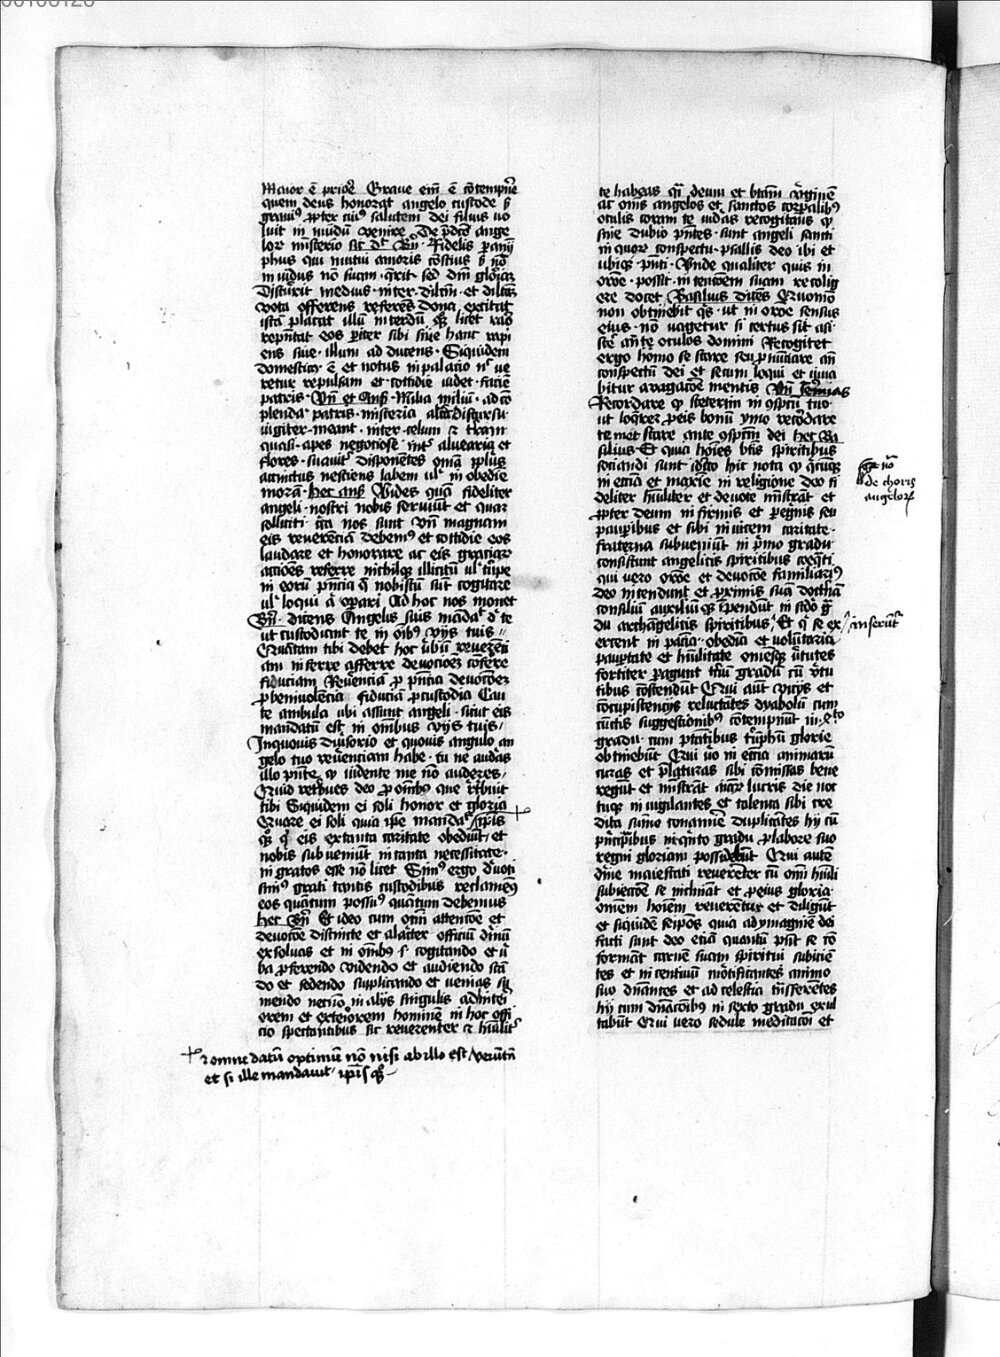 Maior ē prior Graue enī ē cōtempnē
quem deus honorat angelo custode s
grauiꝰ ꝓpter cuiꝰ salutem dei filius uo
luit in mūdū venire De p̄dcō ange
lor misterio sic dt Bn̄ Fidelis
phus qui mutui amoris cōscius s nō
inuidus nō suam q̄rit sed dn̄i glōiaꝫ
Discurrit medius inter dilcm̄ et dilcaꝫ
vota offerens referēs dona excitat
istā placat illū interdū qꝫ licet raro
rep̄ntat eos ꝑiter sibi siue hanc rapi
ens siue illum ad ducens Siquidem
domesticꝰ ē et notus in palacio nec ve
retur repulsam et cottidie videt faciē
patris
plenda patris misteria
uigiter meant inter celum ⁊ trām
quasi apes negociose int alucaria et
flores suauit disponētes om̄ia pplūs
accinctus nesciens labem ul in obedie
morā hec ans Uides quā fideliter
angeli nostri nobis seruiūt et quaꝫ
solliciti circa nos sunt Un̄ magnam
eis reuerēciā debemꝰ et cottidie eos
laudare et honorare ac eis graciaꝝ
acciōes referre nichilqꝫ illicitū ul turpe
in eorū p̄ncia q̄ nobiscū sūt cogitare
ul loqui a oꝑari Ad hoc nos monet
Bn̄ dicens Angelis suis mādauit d te
ut custodiant te in oībꝰ vijs tuis
Quātam tibi debet hoc ubū reuerēci
am inferre afferre deuociōeꝫ cōferre
fiduciam Reuenciā ꝓ p̄ncia deuocōeꝫ
ꝓ beniuolēcia fiduciā ꝓ custodia Cau
te ambula ubi assunt angeli sicut eis
mandatū est in omībus vijs tuis
In quouis diuersorio et quouis angulo an
gelo tuo reuēenciam habe tu ne audas
illo p̄nte qꝫ uidente me nō auderes
Quid retribues deo ꝓ oībꝫ que r̄tbuit
tibi Siquidem ei soli honor et gloria
Quare ei soli quia ip̄e mandauit ip̄is
qꝫ q eis ex tanta caritate obediūt et
nobis subueniūt in tanta necessitate
in gratos esse nō licet Simꝰ ergo deuoti
simꝰ grati tantis custodibus reclamēꝰ
eos quātum possumꝰ quātum debemus
hec Bn̄ Et ideo cum om̄i attencōe et
deuocōe distincte et alacriter officiū diuinū
exsoluas et in oībꝰ s cogitando et ū
ba ꝓferendo videndo et audiendo stā
do et sedendo supplicando et uenias su
mendo necnō in alijs singulis adinteri
orem et exteriorem hominē in hoc offi
cio spectantibus sic reuerenter ⁊ hūilit
⁊ omne datū optimū nō nisi ab illo est verūtn̄
et si ille mandauit ip̄is qꝫ
te habeas q̄i deum et btām v̄ginē
ac om̄s angelos et sanctos corꝑalibꝰ
oculis coram te uidas recogitans qꝫ
sine dubio p̄ntes sunt angeli sancti
in quoꝝ conspectu psallis deo ibi et
ubiqꝫ p̄nti Unde qualiter quis in
orōe possit intencōem suam recollig
ere docet Basilius dicēs Quomō
non obtinebit q̄s ut in orōe sensus
eius nō uagetur si certus sit assi
stē ante oculos domini Recogitet
ergo homo se stare seu ꝓnūciare an̄
conspectū dei et secum loqui et
bitur a uagacōe mentis Un̄ Jeremias
Recordare qꝫ steterim in ꝯspectu tuo
ut loqrer ꝓ eis bonū ymo recordare
te met stare ante ꝯspectum dei hec Ba
silius Et quia hoīes btīs spiritibus
sociandi sunt idcirco hic nota qꝫ q̄cūqꝫ
in ecciā et maxīe in religione deo fi
deliter hūiliter et deuote mīstrāt et
ꝓpter deum infirmis et ꝑegrīis seu
pauꝑibus et sibi inuicem caritate
fraterna subueniūt in p̄mo gradu
consistunt angelicis spiritibus coequati
qui vero orōe et deuocōe familiariꝰ
deo intendunt et ꝓximis suā doctrinā
consiliū auxiliū qꝫ īpendūt in scdō g
du archangelicis spiritibus Et q se ex
ercent in paciā obediā et voluntaria
pauꝑtate et hūilitate omesqꝫ uirtutes
fortiter ꝑagunt trciū gradū cū virtu
tibus cōscendūt Qui aūt vicijs et
cōcupiscencijs reluctātes dyabolū cum
cūctis suggestionibꝰ cōtempnūt in
gradu cum ptātibus triūphū glorie
obtinebūt Qui vo in ecciā animarū
curas et prelaturas sibi cōmissas bene
regūt et mīstrāt aiaꝝ lucris die noc
tuqꝫ inuigilantes et talenta sibi cre
dita sume conamīe duplicātes hij cū
principibus in quito gradu ꝓ labore suo
regni gloriam possidebūt Qui autē
dīne maiestati reuerēter cū om̄i hūili
subieccōe se inclināt et ꝓ eius gloria
omem hoīem reuerētur et diligūt
et siquidē seip̄os quia ad ymaginē dei
facti sunt deo eciā quantū pn̄t se cō
formāt carnē suam spiritui subicien
tes et incentiuū mortificantes animo
suo dn̄antes et ad celestia trāsferētes
hij cum dn̄acōibꝰ in sexto gradu exul
tabūt Qui vero sedule meditacōi et
hic nō
de choris
angelorꝫ
inseruīt